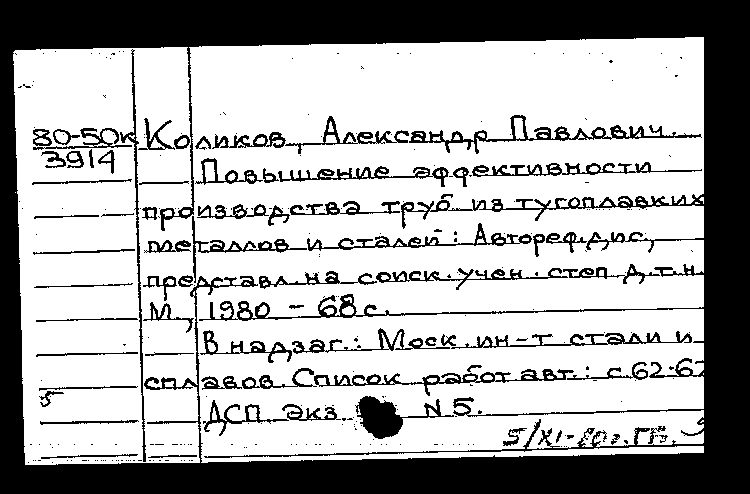 80-50к Коликов, Александр Павлович.
3914
Повышение эффективности
производства труб из тугоплавких
металлов и сталей : Автореф. дис.,
представл. на соиск. учен. степ. д.т.н.
М., 1980 - 68 с.
В надзаг.: Моск. ин-т стали и
сплавов. Список работ авт.: с. 62-67
5
ДСП экз. N 5.
5/XI-80г.